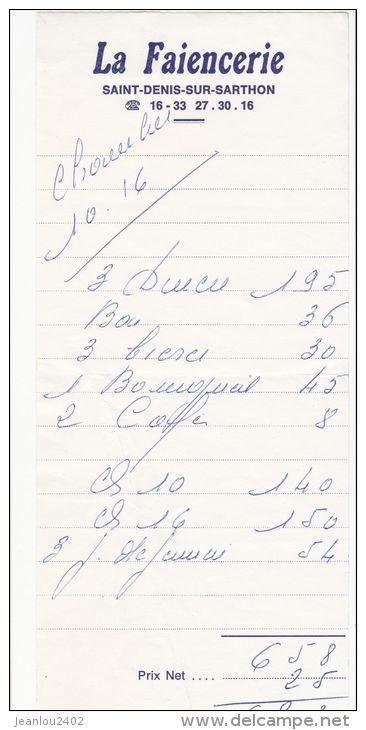 La Faiencerie
SAINT-DENIS-SUR-SARTHON
☎ 16-33 27.30.16
Chambres
10.16
3 Diner 195
36
3 30
1 Bourgueil 45
2 Cafés 8
Ch 10 140
Ch 16 150
3 p. déjeuner 54
658
Prix Net .... 28
jeanlou2402
www.delcampe.net